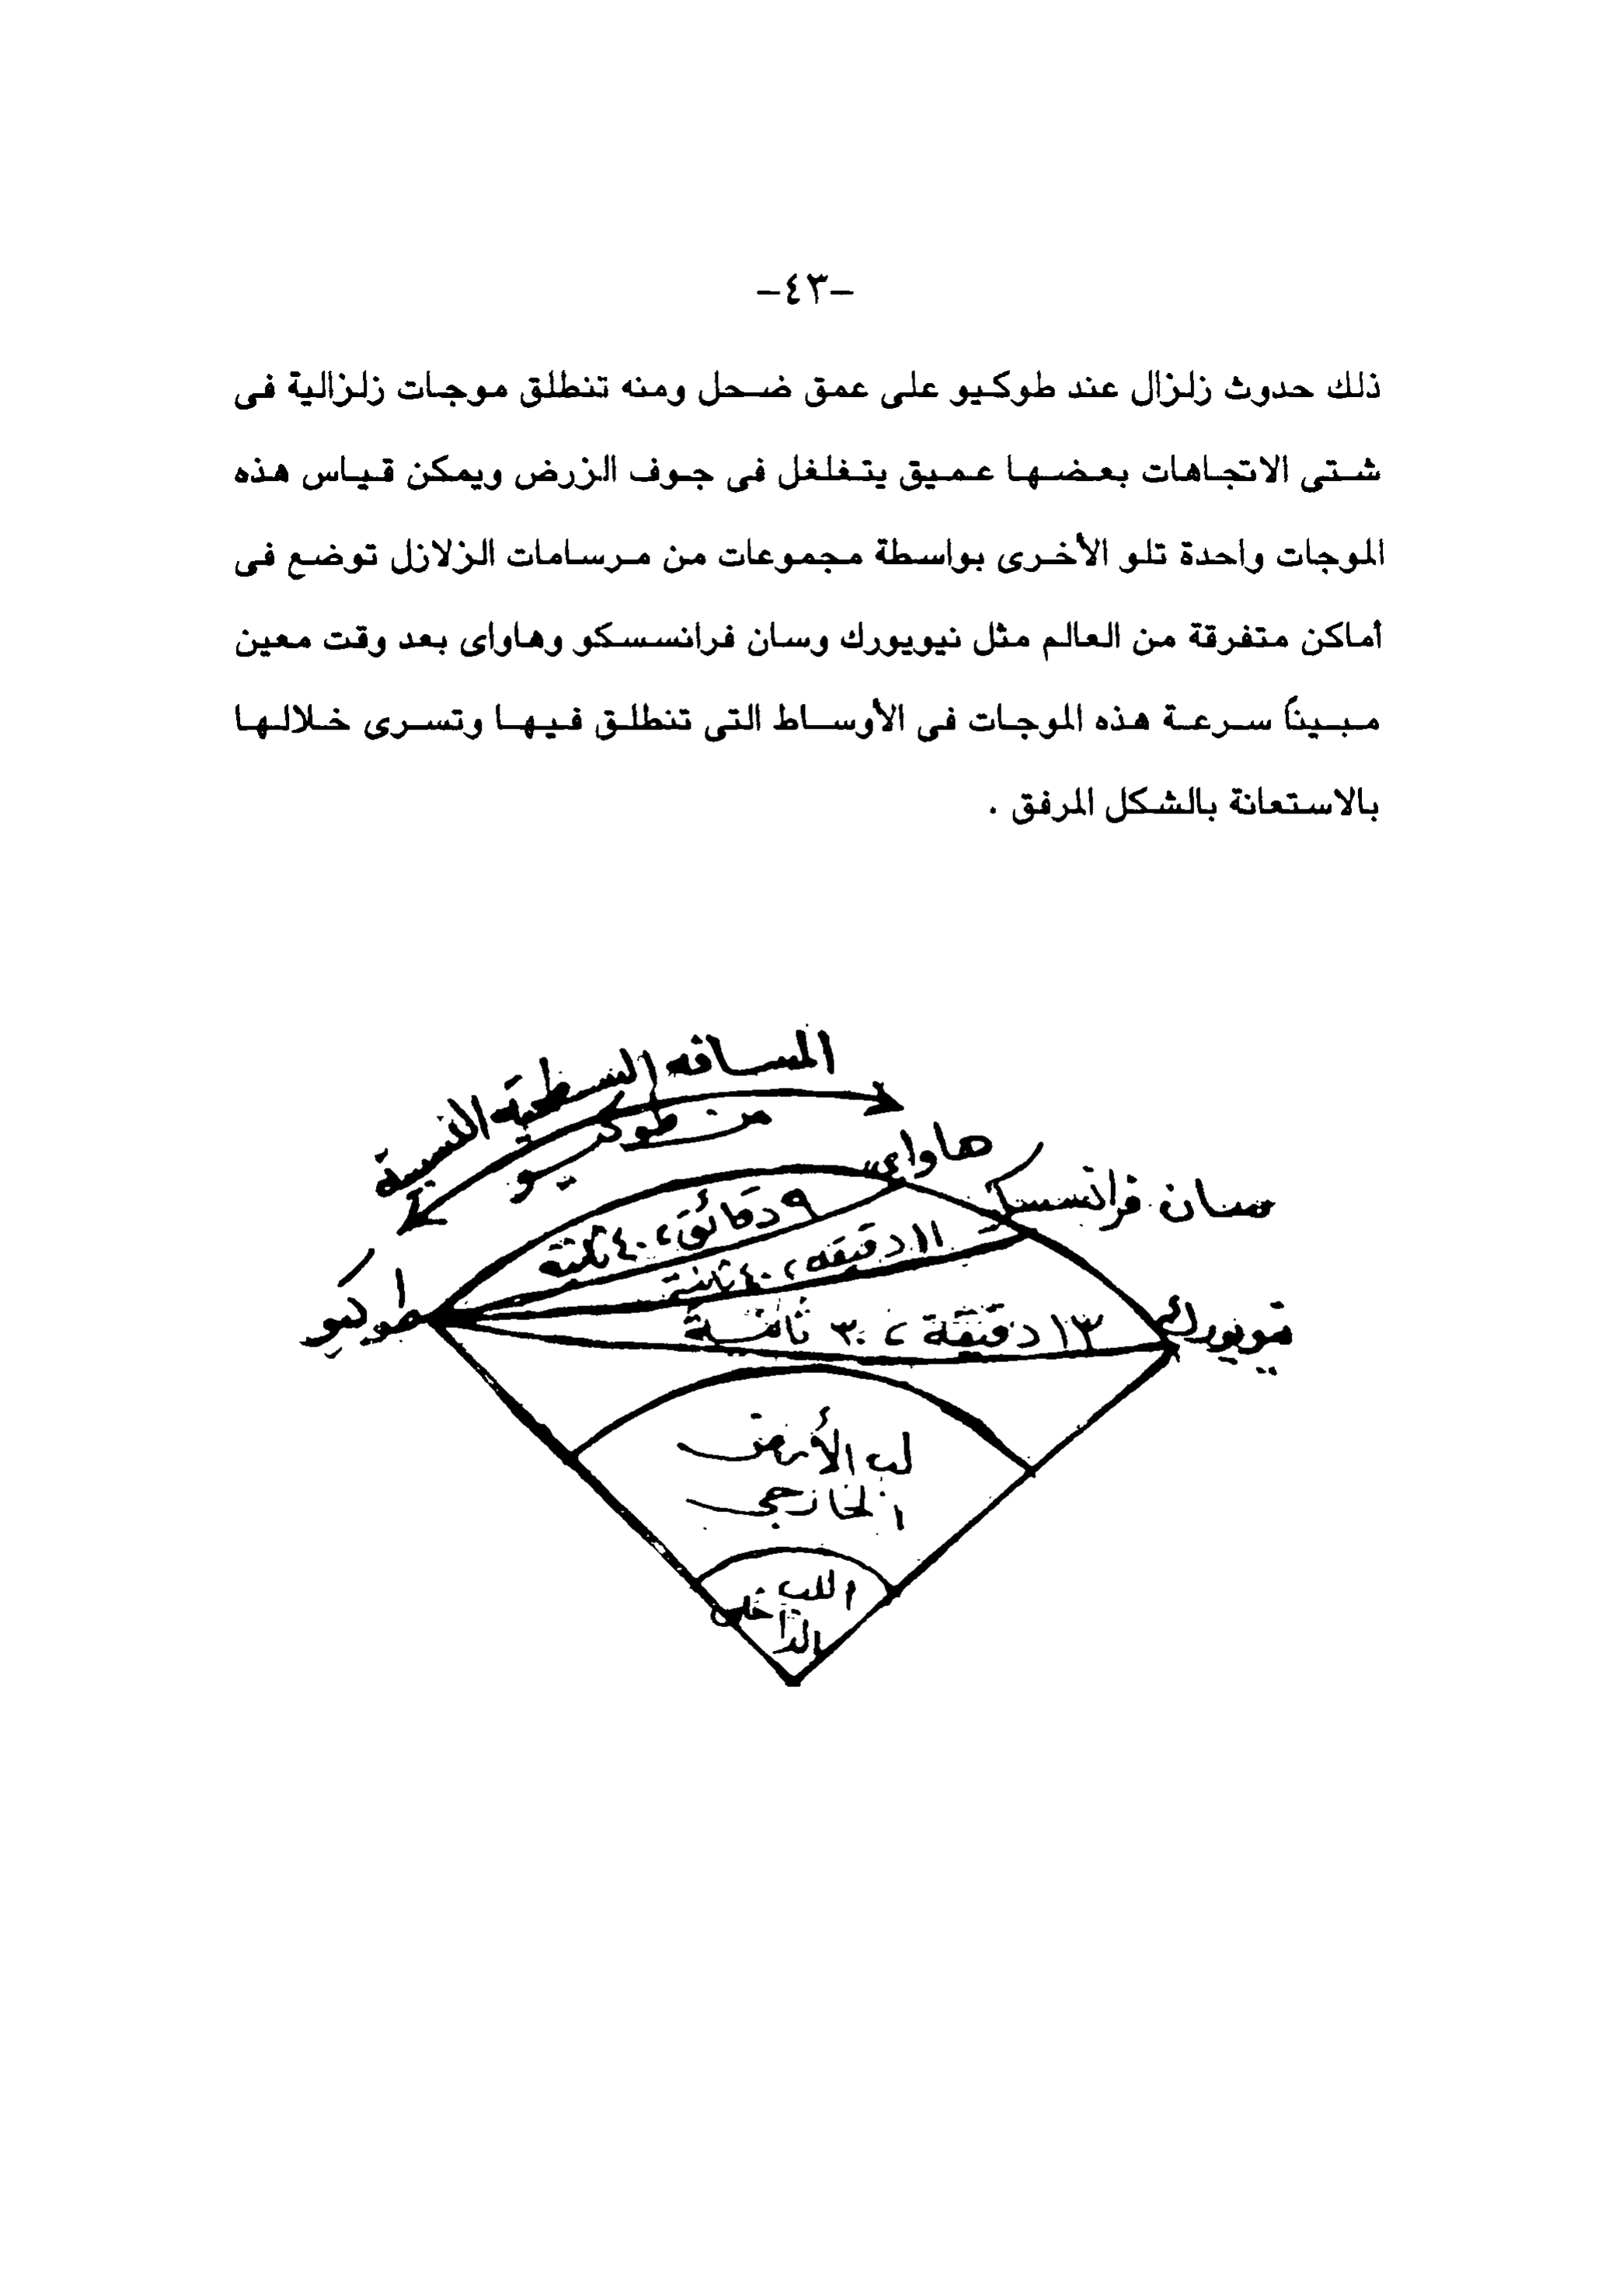 -٤٣-
ذلك حدوث زلزال عند طوكيو على عمق ضحل ومنه تنطلق موجات زلزالية فى
شتى الاتجاهات بعضها عميق يتغلغل فى جوف الزرض ويمكن قياس هذه
الموجات واحدة تلو الأخرى بواسطة مجموعات من مرسامات الزلازل توضع فى
أماكن متفرقة من العالم مثل نيويورك وسان فرانسسكو وهاواى بعد وقت معين
مبيناً سرعة هذه الموجات فى الأوساط التى تنطلق فيها وتسرى خلالها
بالاستعانة بالشكل المرفق .
المسافه السطحية النسبية
من طوكيو
هاواى
سان فرانسسكو
٩ دقائق، ٤٠ ثانية
١١ دقيقه، ٤٠ ثانية
طوكيو
١٣ دقيقة، ٣٠ ثانية
نيويورك
لب الأرض
الخارجى
اللب
الداخلى